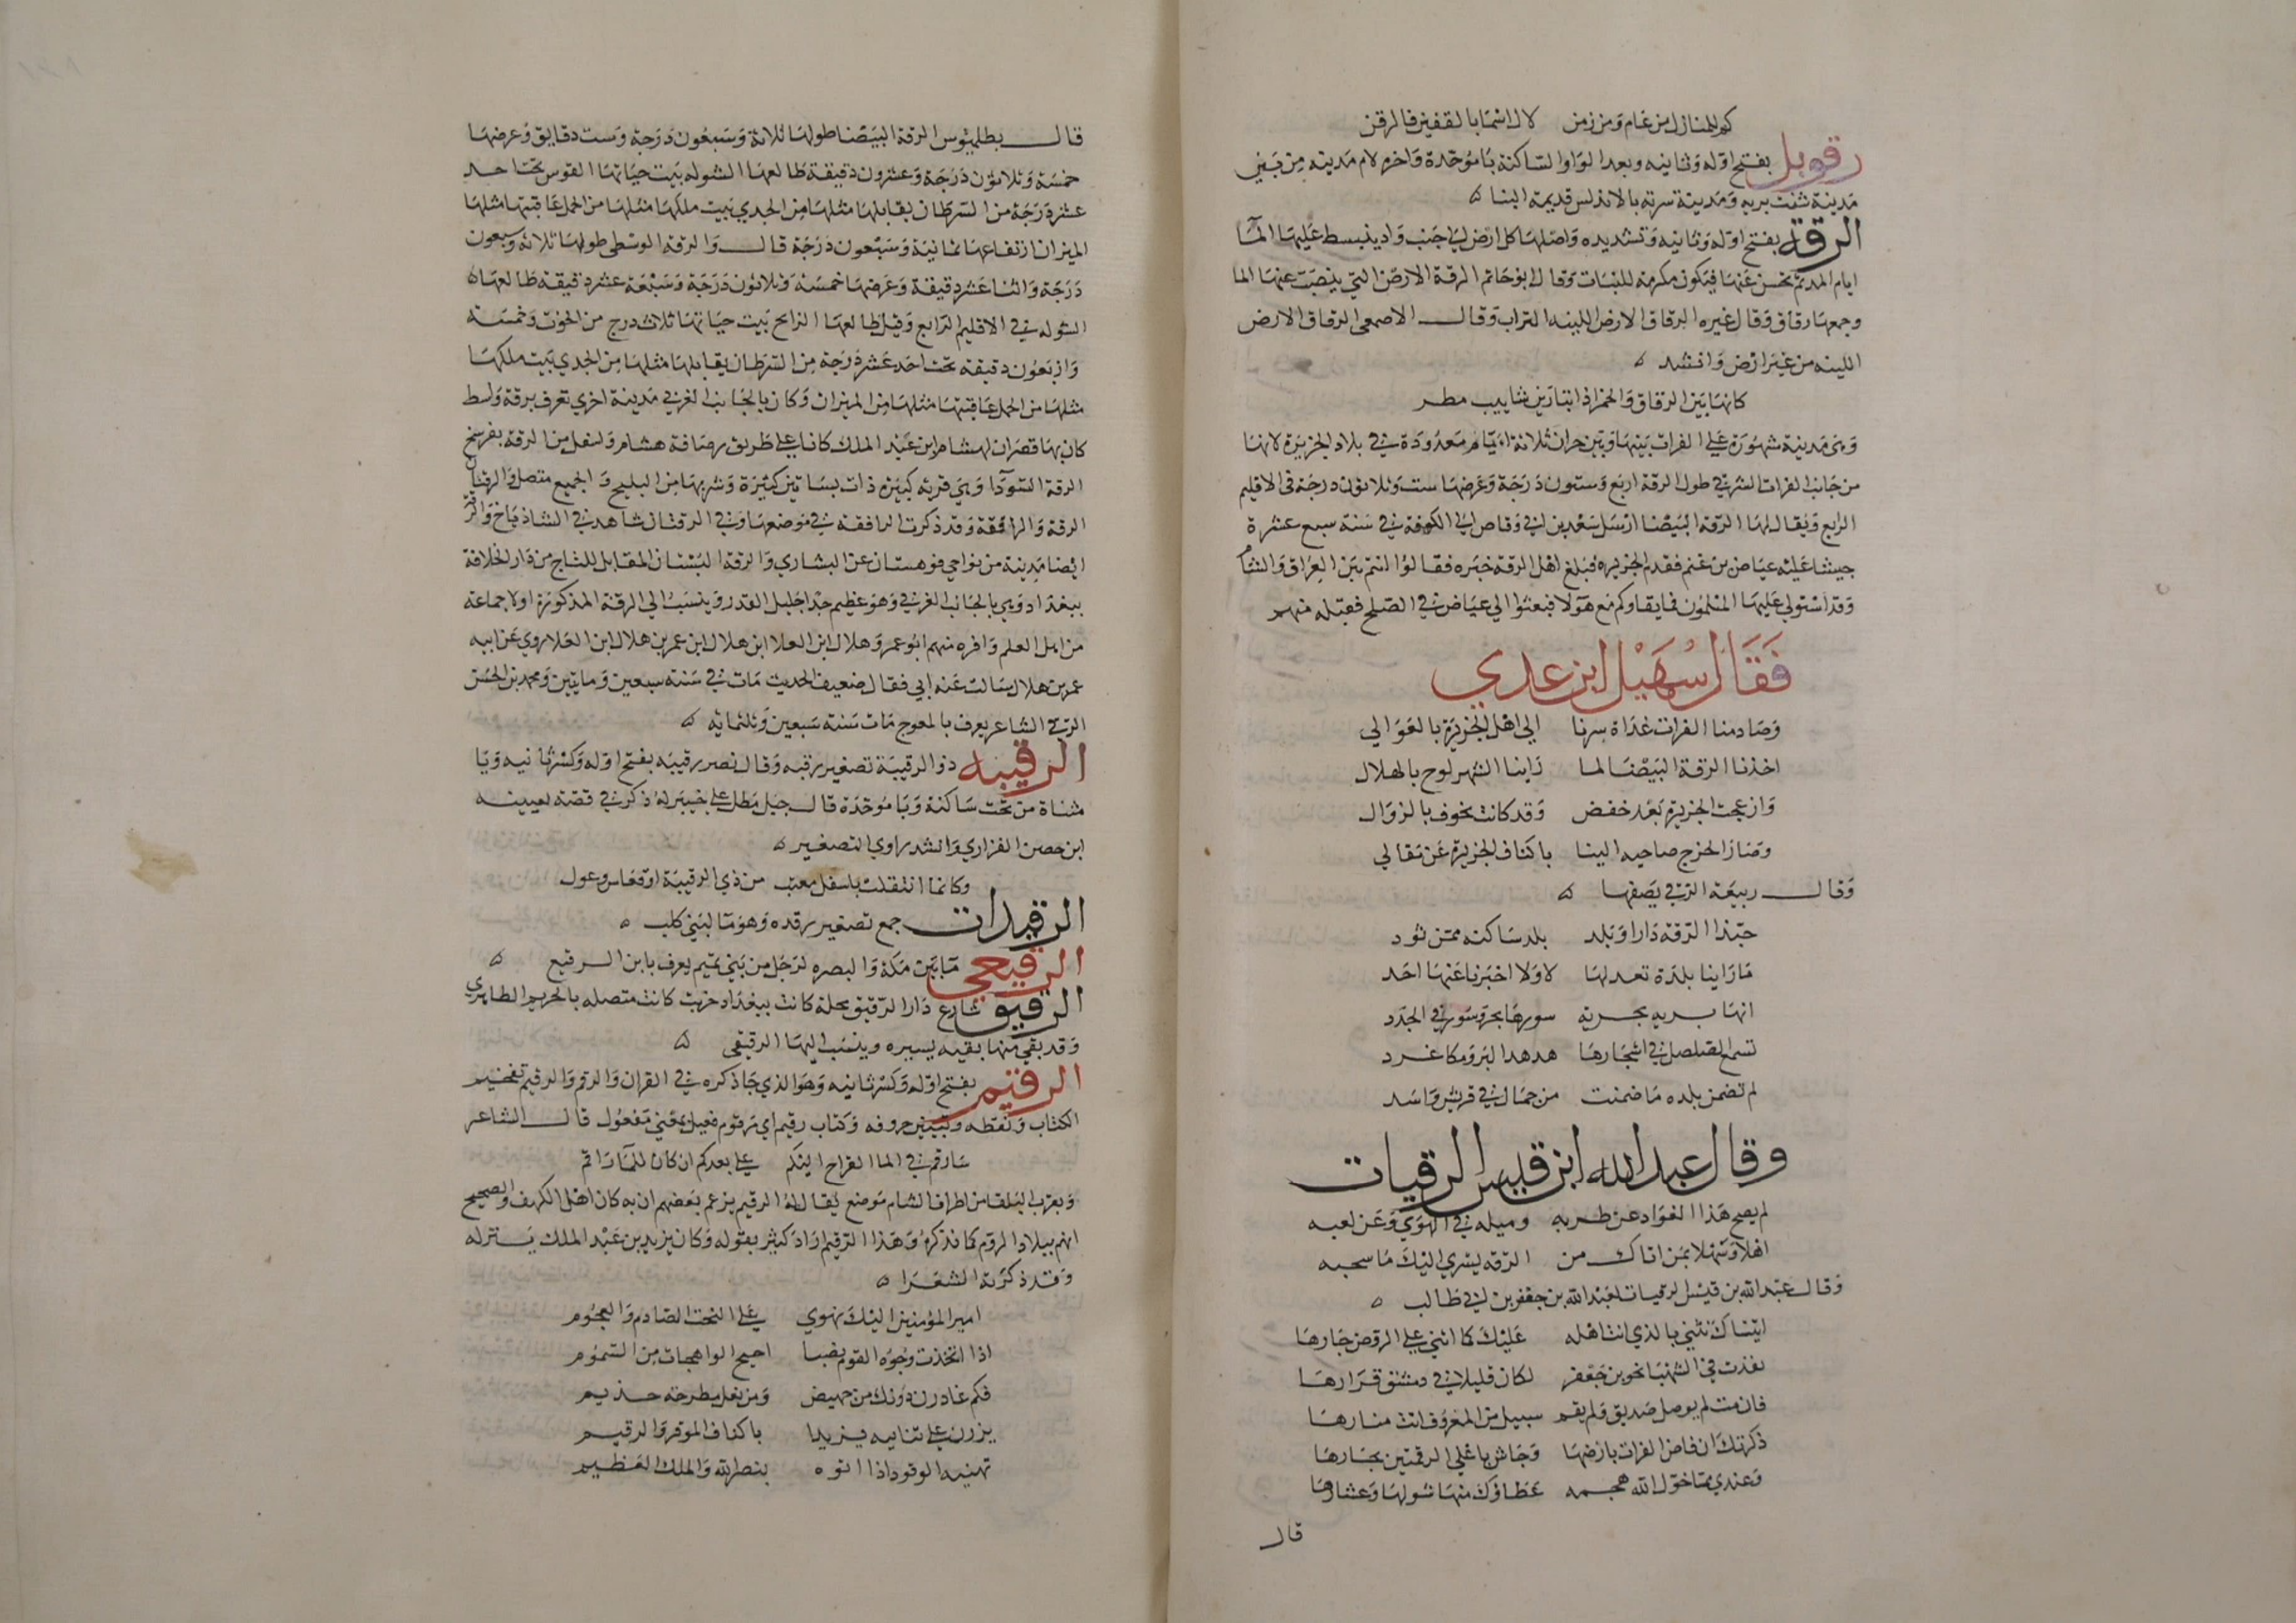 كم للمنازل من عام ومن زمن لال اسما بالقفين فالرقن
رقوبل بفتح اوله وثانيه وبعد الواو الساكنة با موحدة واخره لام مدينه من بين
مدينة شنت بريه ومدينة سرته بالاندلس قديمة البنا ه
الرقة بفتح اوله وثانيه وتشديده واصلها كل ارض الي جنب واد ينبسط عليها المآ
ايام المد ثم يحسن عنها فيكون مكرمة للنبات وقال ابو حاتم الرقة الارض التي ينصبت عنها الما
وجمعها رقاق وقال غيره الرقاق الارض اللينه التراب وقال الاصمعي الرقاق الارض
اللينه من غير ارض وانشد ه
كانها بين الرقاق والخمر اذ اتبارين شابيب مطر
وهي مدينة شهورة علي الفرات بينها وبين حران ثلاثة ايام معدودة في بلاد الجزيرة لانها
من جانب الفرات الشرقي طول الرقة اربع وستون درجة وعرضها ست وثلاثون درجة في الاقليم
الرابع ويقال لها الرقة البيضا ارسل سعد بن ابي وقاص الي الكوفة في سنة سبع عشرة
جيشا عليه عياض بن غنم فقدم الجزيره فبلغ اهل الرقة خبره فقالوا انتم بين العراق والشام
وقد استولي عليها المسلمون فما بقاوكم مع هولا فبعثوا الي عياض في الصلح فقبله منهم
فقال سهيل ابن عدي
وصادمنا الفرات غداة سرنا الي اهل الجزيرة بالعوالي
اخذنا الرقة البيضا لما راينا الشهر لوح بالهلال
وازعجت الجزيرة بعد خفض وقد كانت تخوف بالزوال
وصار الخرج صاحيه الينا باكناف الجزيرة عن تقالي
وقال ربيعة الرقي يصفها ه
حبذا الرقة دارا وبلد بلد ساكنه ممن تود
ما راينا بلدة تعدلها لا ولا اخبرنا عنها احد
انها بريه بحرية سورها بحر وسور في الجدد
تسمع الصلصل في اشجارها هدهد البر ومكا غرد
لم تضمن بلده ما ضمنت من جمال في قريش واسد
وقال عبد الله ابن قيس الرقيات
لم يصح هذا الفواد عن طربه وميله في الهوي وعن لعبه
اهلا وسهلا بمن اتاك من الرقة يسري اليك ما سحبه
وقال عبد الله بن قيس الرقيات لعبد الله بن جعفر بن ابي طالب ه
اتيناك نثني بالذي انت اهله عليك كما اثني علي الروض جارها
تقدت بي الشهبا نحو بن جعفر لكان قليلا في دمشق قرارها
فان مت لم يوصل صديق ولم يقم سبيل من المعروف انت منارها
ذكرتك ان فاض الفرات بارضها وجاش باعلي الرقتين بحارها
وعندي مما خول الله هجمه عطاوك منها شولها وعشارها
قال
قال بطلميوس الرقة البيضا طولها ثلاثة وسبعون درجة وست دقايق وعرضها
خمسة وثلاثون درجة وعشرون دقيقة طالعها الشوله بيت حياتها القوس تحتاحد
عشرة درجة من السرطان يقابلها مثلها من الجدي بيت ملكها مثلها من الحمل عاقبتها مثلها
الميزان ارتفاعها ثمانية وسبعون درجة قال والرقة الوسطي طولها ثلاثة وسبعون
درجة واثنا عشر دقيقة وعرضها خمسة وثلاثون درجة وسبعة عشر دقيقة طالعها ه
الشوله في الاقليم الرابع وقيل طالعها الرابح بيت حياتها ثلاث درج من الحوت وخمسة
واربعون دقيقة تحت احد عشر درجة من السرطان يقابلها مثلها من الجدي بيت ملكها
مثلها من الحمل عاقبتها مثلها من الميزان وكان بالجانب الغربي مدينة اخري تعرف برقة واسط
كان بها قصران لهشام ابن عبد الملك كانا علي طريق رصافة هشام واسفل من الرقة بفرسخ
الرقة السودآ وهي قرية كبيرة ذات بساتين كثيرة وشربها من البليح والجميع متصل والرقتان
الرقة والرافقة وقد ذكرت الرافقة في موضعها وفي الرقتان شاهد في الشاذياخ والرقة
ايضا مدينة من نواحي قوهستان عن البشاري والرقة البستان المقابل للتاج من دار الخلافة
ببغداد وهي بالجانب الغربي وهو عظيم جدا جليل القدر وينسب الي الرقة المذكورة اولا جماعة
من اهل العلم وافره منهم ابو عمرو هلال ابن العلا ابن هلال ابن عمر بن هلال ابن العلا روي عن ابيه
عمر بن هلال سالت عنه ابي فقال ضعيف الحديث مات في سنة سبعين ومايتين ومحمد بن الحسن
الرقي الشاعر يعرف بالمعوج مات سنة سبعين وثلثماية ه
الرقيبه ذو الرقيبة تصغير رقبه وقال نصر رقيبه بفتح اوله وكسر ثانيه ويا
مثناة من تحت ساكنة وبا موحدة قال جبل مطل علي خيبر له ذكر في قصة لعيينه
ابن حصن الفزاري وانشد راوي التصغير ه
وكانما انتقلت باسفل معتب من ذي الرقيبة او قعاس وعول
الرقيدات جمع تصغير رقده وهو ما لبني كلب ه
الرقيعي ما بين مكة والبصره لرجل من بني تميم يعرف بابن الرقيع ه
الرقيق شارع دار الرقيق محلة كانت ببغداد خربت كانت متصله بالحريم الطاهري
وقد بقي منها بقيه يسيره وينسب اليها الرقيقي ه
الرقيم بفتح اوله وكسر ثانيه وهو الذي جا ذكره في القران والرقم والرقيم تعجيم
الكتاب ونقطه وتبيين حروفه وكتاب رقيم اي مرقوم فعيل بمعني مفعول قال الشاعر
سارقم في الما القراح اليكم علي بعدكم ان كان للما راقم
وبقرب البلقا من اطراف الشام موضع يقال له الرقيم يزعم بعضهم ان به كان اهل الكهف والصحيح
انهم ببلاد الروم كما نذكره وهذا الرقيم اراد كثير بقوله وكان يزيد بن عبد الملك ينزله
وقد ذكرته الشعرا ه
امير المومنين اليك نهوي علي البخت الصلادم والعجوم
اذا اتخذت وجوه القوم نصبا اجيح الواهجات من السموم
فكم غادرن دونك من جهيض ومن نعل مطرحة جذيم
يزرن علي تنانيه يزيدا باكناف الموقر والرقيم
تهنيه الوفود اذا اتوه بنصر الله والملك العظيم